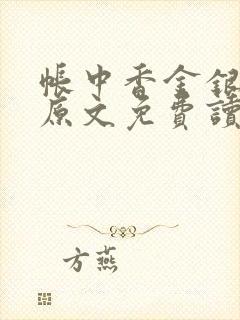 帳中香金銀
原文免費讀
方燕